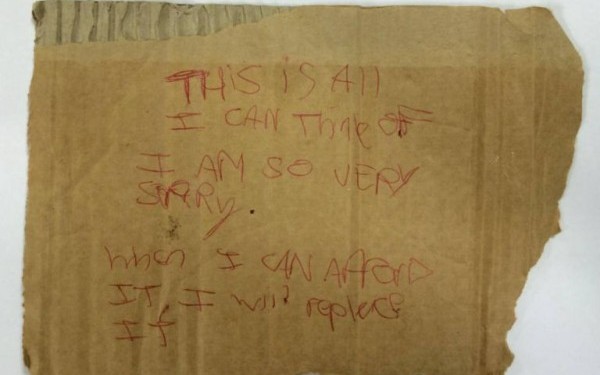 THIS iS All
I CAN Think OF
I AM SO VERY
SORRY.
when I CAN AFFORD
IT, I will replace
It